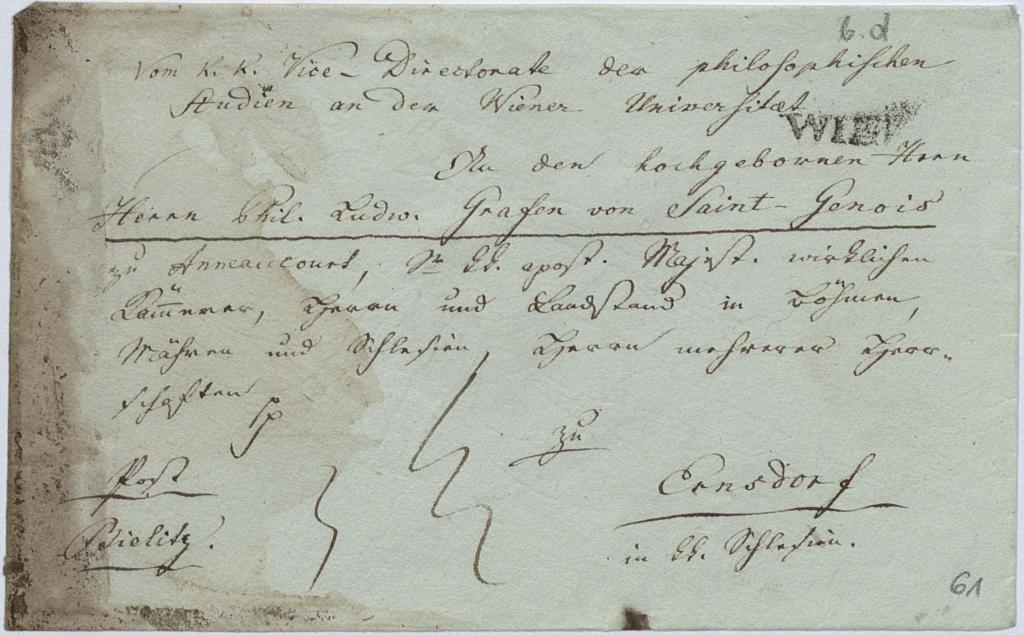 6.d
Vom K. K. Vice-Directorate der philosophischen
Studien an der Wiener Universitæt
WIEN
An den hochgebornen Herrn
Herrn Phil. Ludw. Grafen von Saint-Genois
zu Anneaucourt, Sr kk. apost. Majest. wirklichen
Kämerer, Herrn und Landstand in Böhmen,
Mähren und Schlesien, Herrn mehrerer Herr-
schaften
zu
Post
Ernsdorf
Bielitz.
in kk. Schlesien.
61